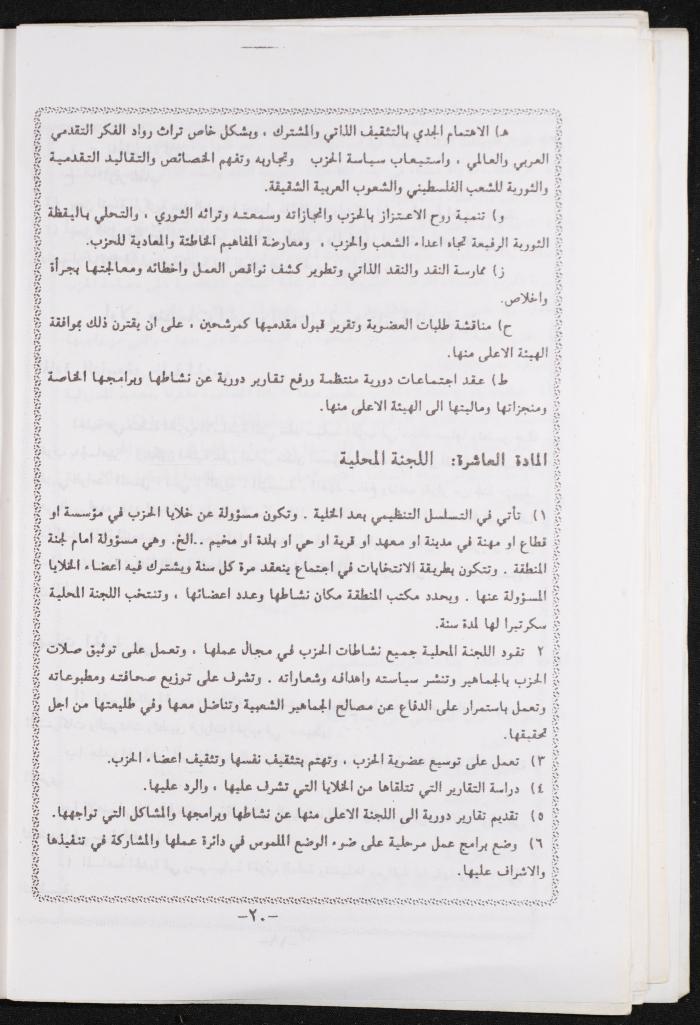 هـ) الاهتمام الجدي بالتثقيف الذاتي والمشترك ، وبشكل خاص تراث رواد الفكر التقدمي
العربي والعالمي ، واستيعاب سياسة الحزب وتجاربه وتفهم الخصائص والتقاليد التقدمية
والثورية للشعب الفلسطيني والشعوب العربية الشقيقة.
و) تنمية روح الاعتزاز بالحزب وانجازاته وسمعته وتراثه الثوري ، والتحلي باليقظة
الثورية الرفيعة تجاه اعداء الشعب والحزب ، ومعارضة المفاهيم الخاطئة والمعادية للحزب.
ز) ممارسة النقد والنقد الذاتي وتطوير كشف نواقص العمل واخطائه ومعالجتها بجرأة
واخلاص.
ح) مناقشة طلبات العضوية وتقرير قبول مقدميها كمرشحين ، على ان يقترن ذلك بموافقة
الهيئة الاعلى منها.
ط) عقد اجتماعات دورية منتظمة ورفع تقارير دورية عن نشاطها وبرامجها الخاصة
ومنجزاتها وماليتها الى الهيئة الاعلى منها.
المادة العاشرة: اللجنة المحلية
١) تأتي في التسلسل التنظيمي بعد الخلية . وتكون مسؤولة عن خلايا الحزب في مؤسسة او
قطاع او مهنة في مدينة او معهد او قرية او حي او بلدة او مخيم ..الخ. وهي مسؤولة امام لجنة
المنطقة . وتتكون بطريقة الانتخابات في اجتماع ينعقد مرة كل سنة ويشترك فيه اعضاء الخلايا
المسؤولة عنها . ويحدد مكتب المنطقة مكان نشاطها وعدد اعضائها ، وتنتخب اللجنة المحلية
سكرتيرا لها لمدة سنة.
٢ تقود اللجنة المحلية جميع نشاطات الحزب في مجال عملها ، وتعمل على توثيق صلات
الحزب بالجماهير وتنشر سياسته واهدافه وشعاراته . وتشرف على توزيع صحافته ومطبوعاته
وتعمل باستمرار على الدفاع عن مصالح الجماهير الشعبية وتناضل معها وفي طليعتها من اجل
تحقيقها.
٣) تعمل على توسيع عضوية الحزب ، وتهتم بتثقيف نفسها وتثقيف اعضاء الحزب.
٤) دراسة التقارير التي تتلقاها من الخلايا التي تشرف عليها ، والرد عليها.
٥) تقديم تقارير دورية الى اللجنة الاعلى منها عن نشاطها وبرامجها والمشاكل التي تواجهها.
٦) وضع برامج عمل مرحلية على ضوء الوضع الملموس في دائرة عملها والمشاركة في تنفيذها
والاشراف عليها.
-٢٠-